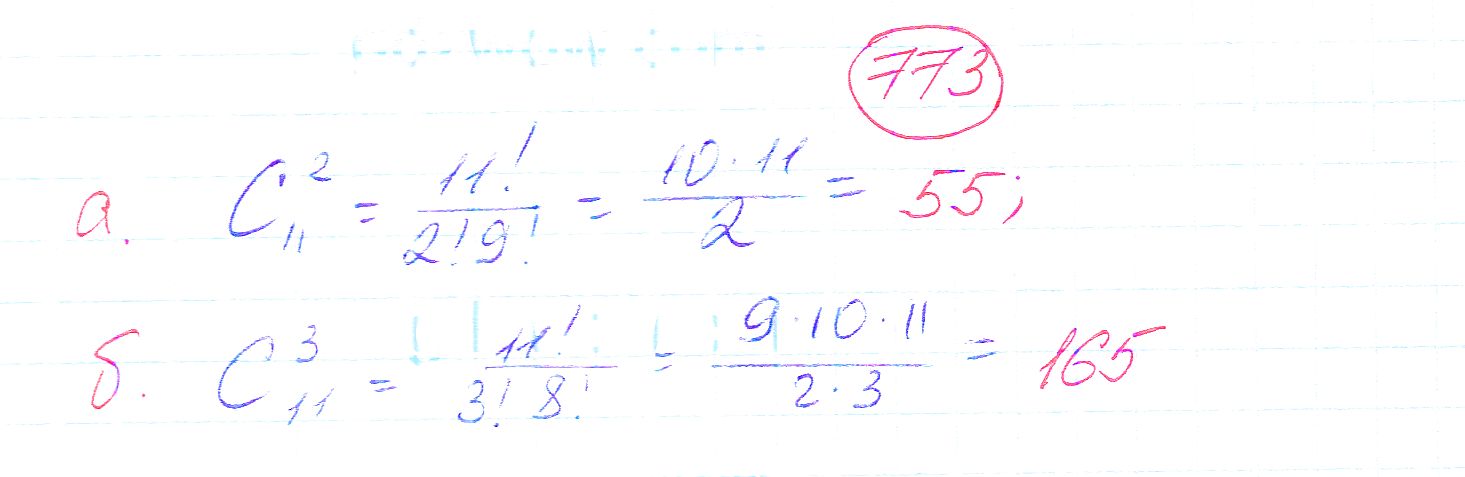 773
а. C₁₁² = 11!/2!9! = 10·11/2 = 55;
б. C₁₁³ = 11!/3!8! = 9·10·11/2·3 = 165